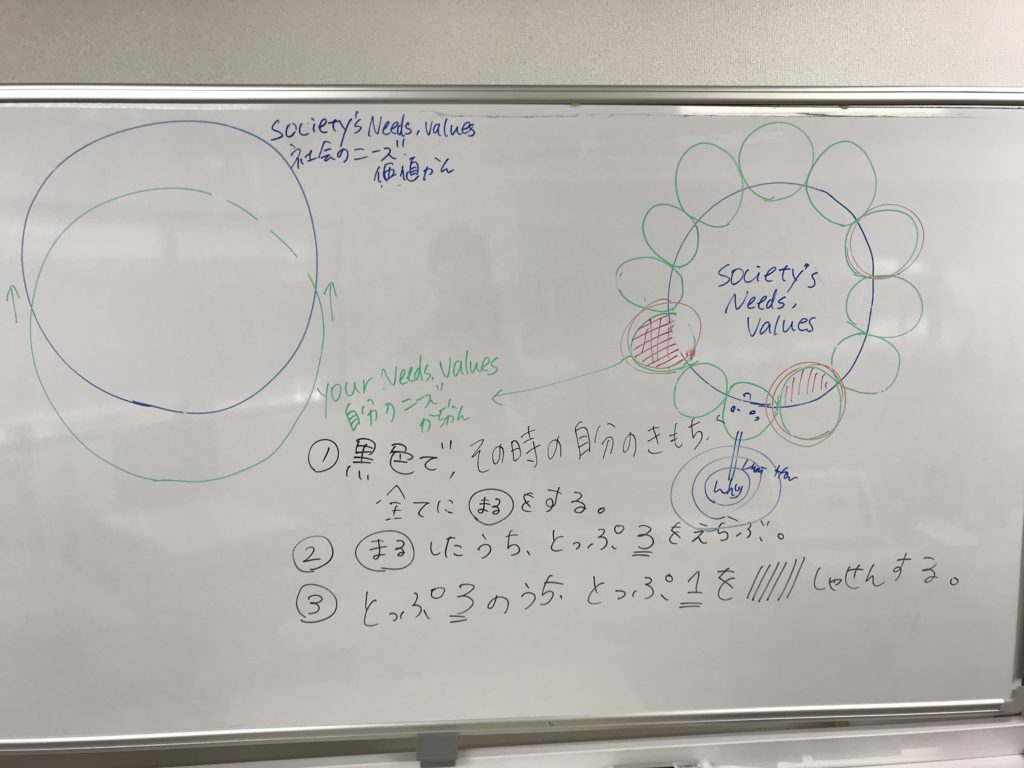 Society's Needs, values
社会のニーズ
価値かん
Society's
Needs,
Values
your Needs, Values
自分のニーズ
かちかん
① 黒色で、その時の自分のきもち、
全てに まる をする。
② まる したうち、とっぷ 3 をえらぶ。
③ とっぷ 3 のうち、とっぷ 1 を ////// しゃせんする。
Why
How